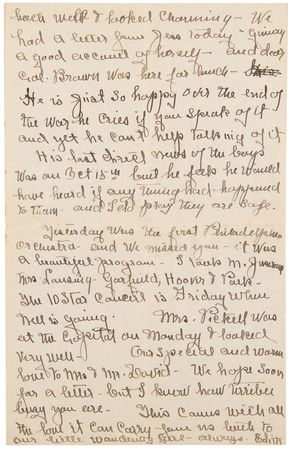 back Walk & looked Charming - We
had a letter from Jess today - giving
a good account of herself - and dear
Col. Brown was here for lunch -
He is just so happy over the end of
the war he cries if you speak of it
and yet he can't help talking of it
His last direct news of the boys
was on Oct 15th but he feels he would
have heard if any thing had happened
to them - and I do pray they are safe.
Yesterday was the first Philadelphia
Orchestra - and We missed you - it was
a beautiful program - I took M.
Mrs Lansing - Garfield, Hoover & Park -
The 10 Star Concert is Friday When
Nell is going. Mrs. Pickell was
at the Capitol on Monday & looked
very well - Our special and warm
love to Mr & Mr. David - We hope soon
for a letter - but I know how terribly
busy you are - This comes with all
the love it can carry - from us both to
our little wandering Girl - always. Edith